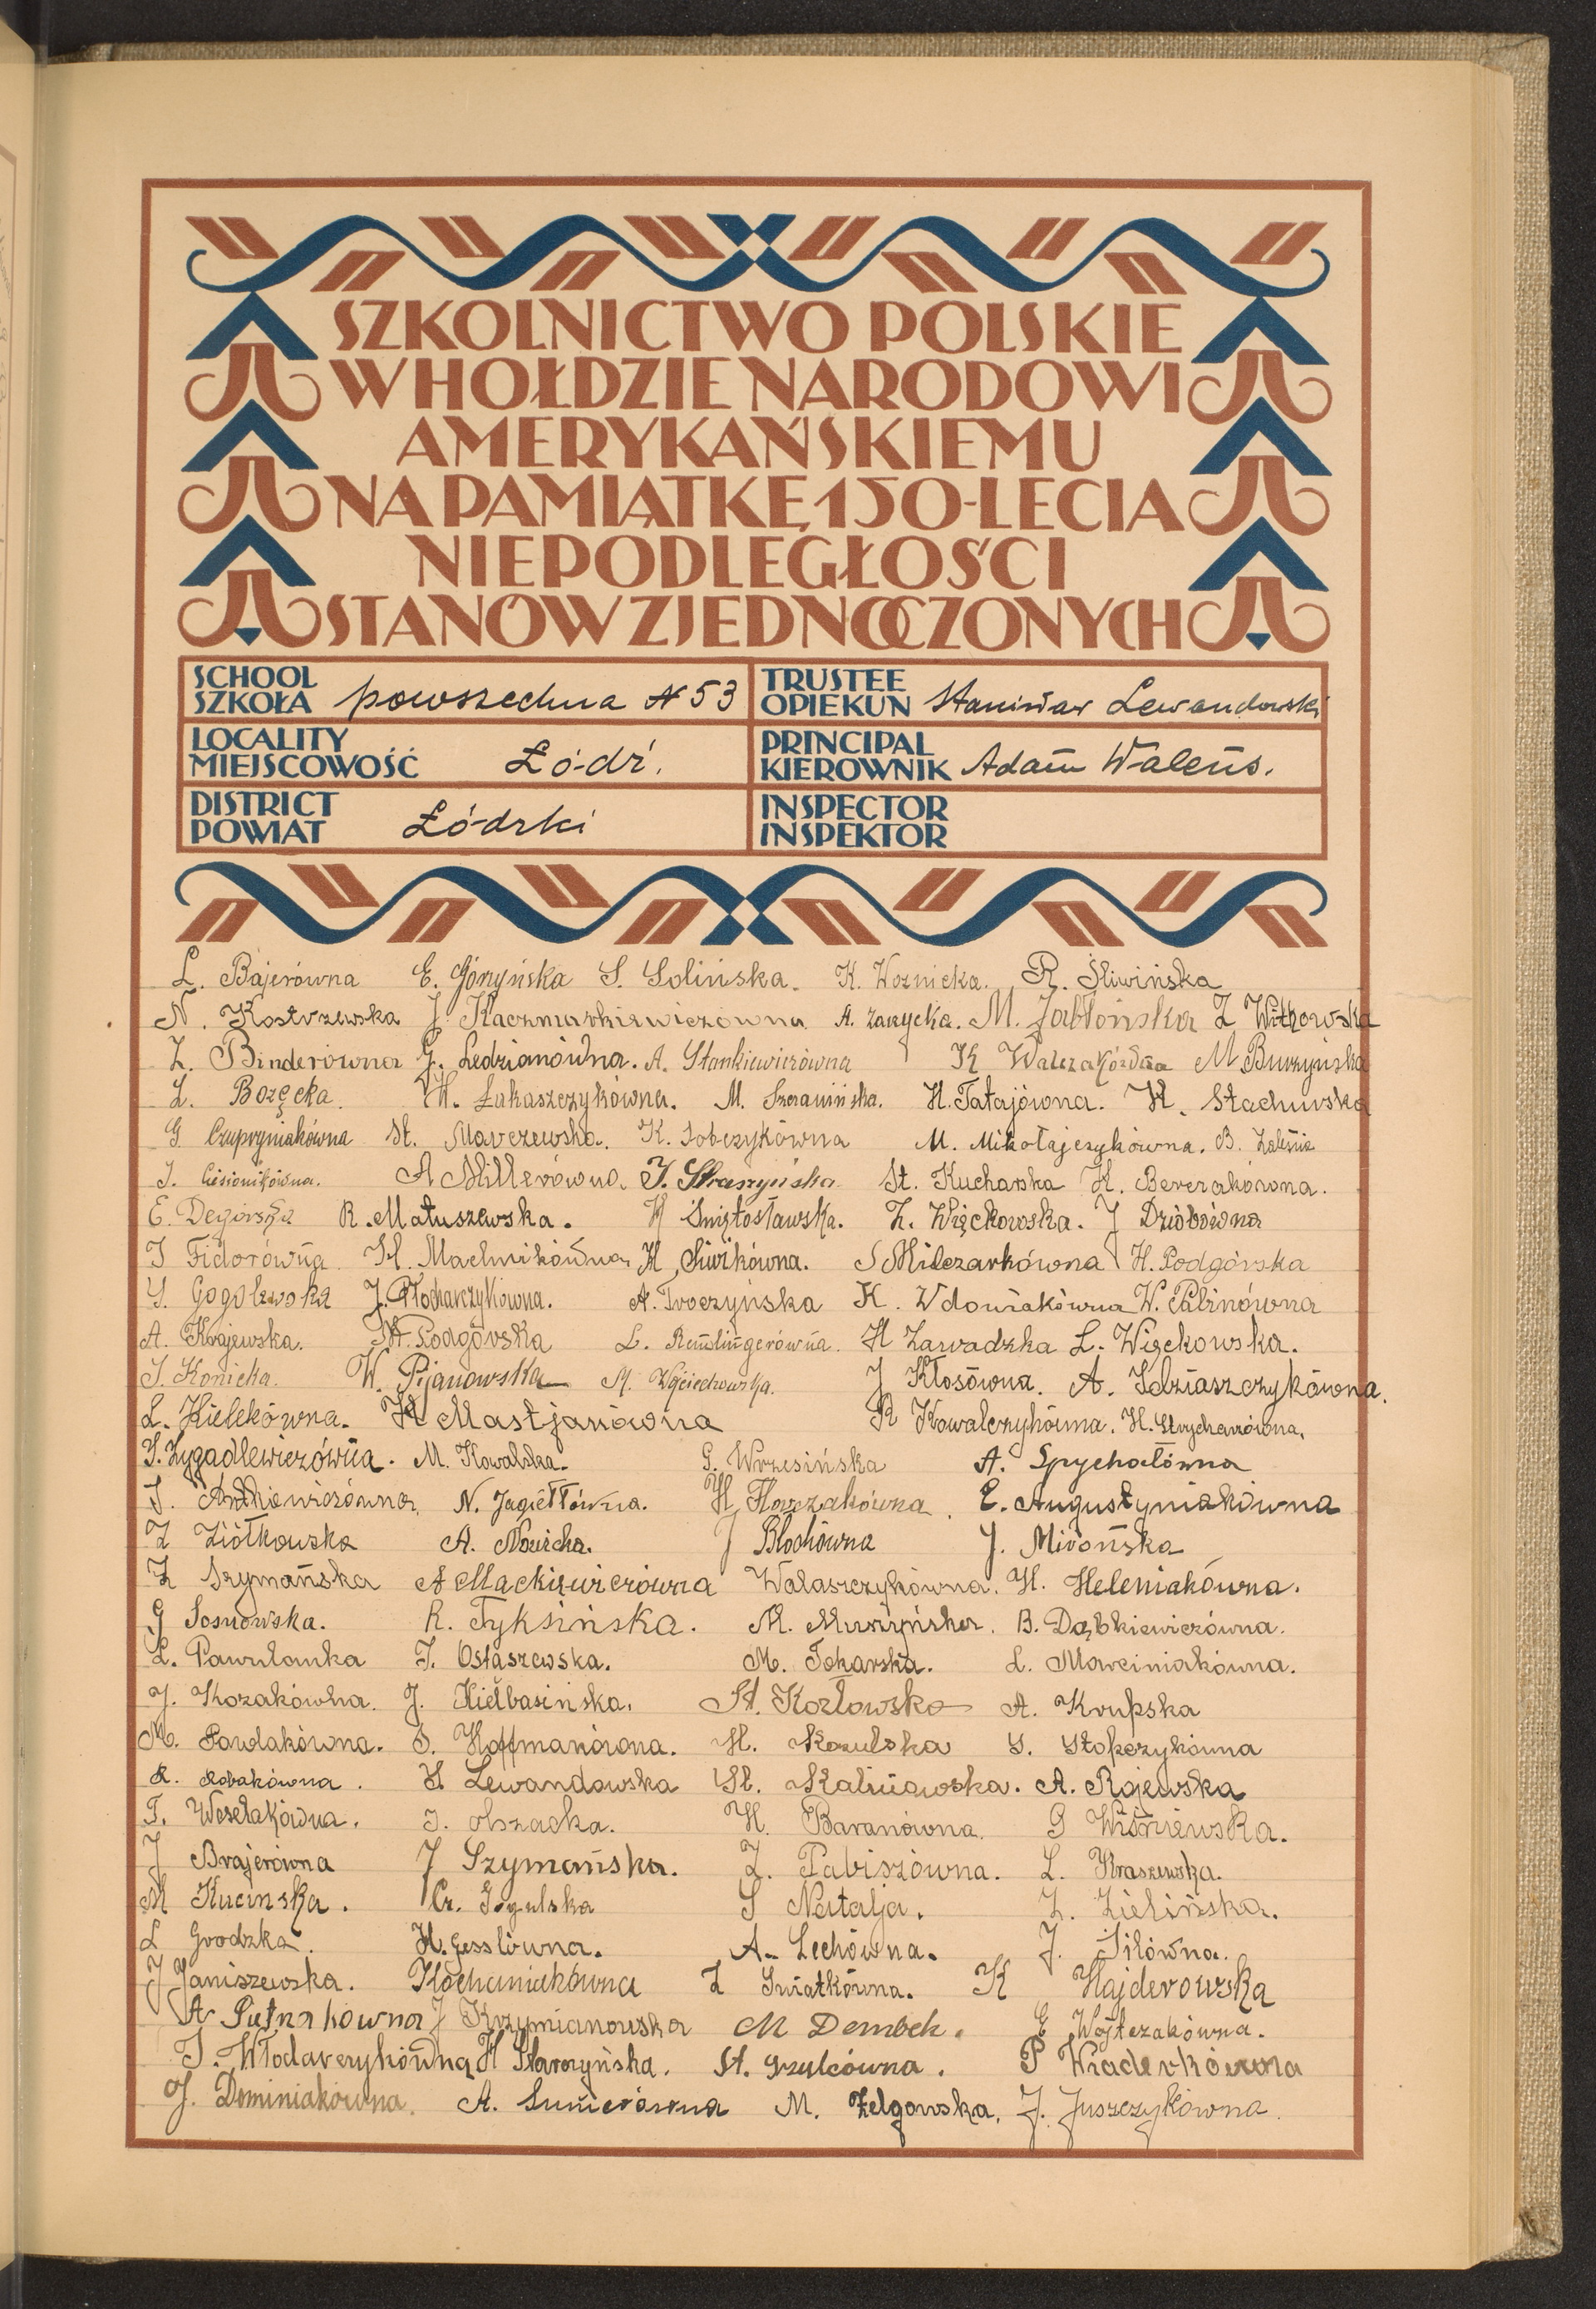 SZKOLNICTWO POLSKIE
W HOŁDZIE NARODOWI
AMERYKAŃSKIEMU
NA PAMIĄTKĘ 150-LECIA
NIEPODLEGŁOŚCI
STANÓW ZJEDNOCZONYCH
SCHOOL
SZKOŁA powszechna N 53
TRUSTEE
OPIEKUN Stanisław Lewandowski
LOCALITY
MIEJSCOWOŚĆ Łódź.
PRINCIPAL
KIEROWNIK Adam Waleńs.
DISTRICT
POWIAT Łódzki
INSPECTOR
INSPEKTOR
L. Bajerówna E. Górzyńska S. Solińska. K. Woznicka. R. Śliwińska
N. Kostrzewska J Kaczmarkiewiczówna A. Zarzycka. M. Jabłońska Z Witkowska
Z. Binderówna G. Ledzianówna. A. Stankiewiczówna K Walczakówna M Burzyńska
Z. Bozęcka. H. Łukaszczykówna. M. H. Tatajówna. K. Stachurska
G Czupryniakówna St. Marczewska. K. Sobczykówna M. Mikołajczykówna. B. Zaleśna
J. Cieśionikówna. A Millerówna. J. Straszyńska St. Kucharska H. Berezakówna.
E. Degórska R. Matuszewska. H Świętosławska. Z. Więckowska. J Dzióbówna
J Fidorówna H. Machnikówna H Siwikówna. S Milczarkówna H. Podgórska
S. Gogolewska J. Włodarczykówna. A. Tworzyńska K. Wdowiakówna W. Palinówna
A. Krajewska. W. Podgórska L. Remlingerówna. H Zawadzka L. Więckowska.
J. Konicka. W. Pijanowska M. Wojciechowska. J Kłosówna. A. Idziaszczykówna.
L. Hielekówna. H Mastjanówna R Kowalczykówna. H. Strycharzówna.
S. Zygadlewiczówna. M. Kowalska. G. Wrzesińska A. Spychałówna
J. Antkiewiczówna N. Jagiełłówna. H Florczakówna. E. Augustyniakówna
Z Ziółkowska A. Nowicka. J Blochówna J. Mirońska
Z Szymańska A Mackiewiczówna Walaszczykówna. H. Heleniakówna.
G Sosnowska. R. Fyksińska. M. Murzyńska. B. Dąbkiewiczówna.
L. Pawulanka J. Ostaszewska. M. Tokarska. L. Marciniakówna.
J. Kozakówna. J. Kiełbasińska. St. Kozłowska A. Krupska
M. Pawlakówna. S. Hoffmanówna. H. Kozulska S. Stopczykówna
R. Robakówna. H Lewandowska St. Kalinowska. A. Rajewska
T. Wesełakówna. J. Olszacka. H. Baranówna. G Wiśniewska.
J Brajerówna J Szymańska. Z. Pabiszówna. L. Kraszewska.
M Kucinska. Cz. Gogulska S Natalja. Z. Zielińska.
L Grodzka. H. Gesslówna. A. Lechówna. J. Siłówna.
J Janiszewska. Kochaniakówna Z Światkówna. K Hajderowska
A Pietrzakówna J Krzymianowska M Dembek. E Wojtczakówna.
J. Włodarczykówna H Starorzyńska. St. Grzulcówna. P Wiaderkówna
J. Dominiakówna. A. Sumerówna M. Zelgowska. J. Juszczykówna.